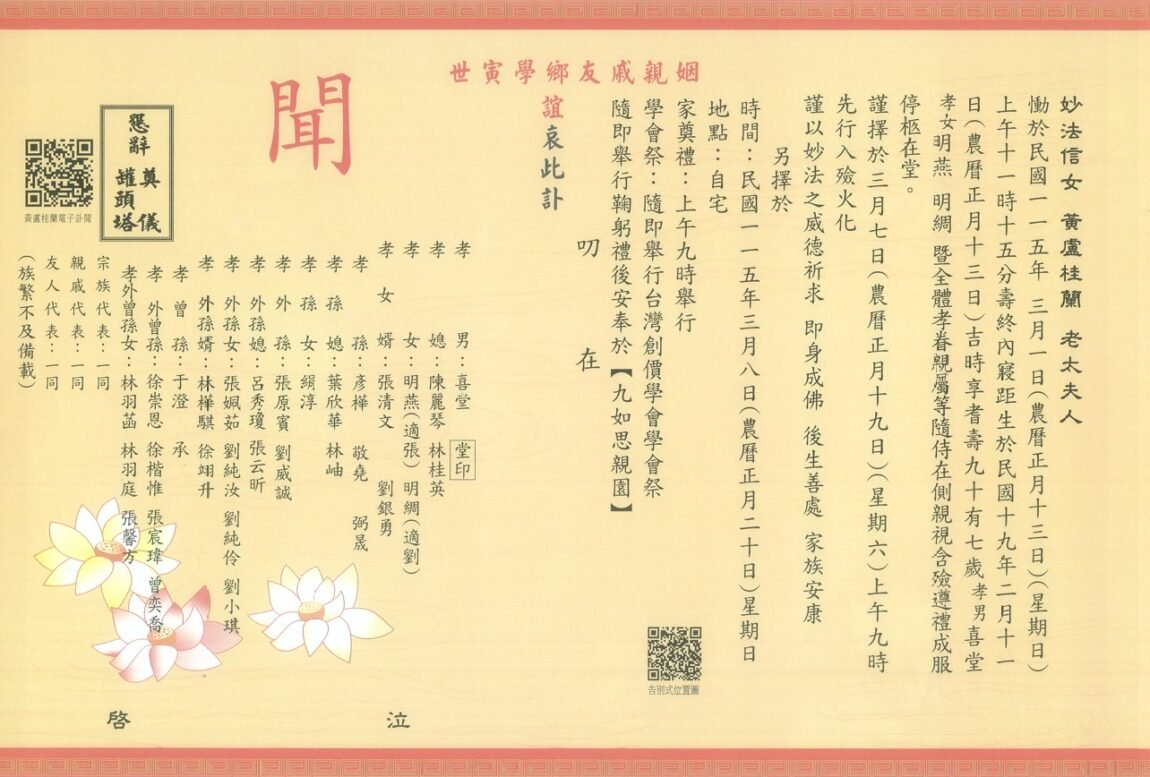 妙法信女 黃盧桂蘭 老太夫人
慟於民國一一五年 三月一日(農曆正月十三日)(星期日)
上午十一時十五分壽終內寢距生於民國十九年二月十一
日(農曆正月十三日)吉時享耆壽九十有七歲孝男喜堂
孝女明燕 明綢 暨全體孝眷親屬等隨侍在側親視含殮遵禮成服
停柩在堂。
謹擇於三月七日(農曆正月十九日)(星期六)上午九時
先行入殮火化
謹以妙法之威德祈求 即身成佛 後生善處 家族安康
另擇於
時間:民國一一五年三月八日(農曆正月二十日)星期日
地點:自宅
家奠禮:上午九時舉行
學會祭:隨即舉行台灣創價學會學會祭
隨即舉行鞠躬禮後安奉於【九如思親園】
告別式位置圖
叨 在
世寅學鄉友戚親姻
誼哀此訃
聞
孝 男:喜堂 堂印
孝 媳:陳麗琴 林桂英
孝 女:明燕(適張) 明綢(適劉)
孝 女 婿:張清文 劉銀勇
孝 孫:彥樺 敬堯 弼晟
孝 孫 媳:葉欣華 林岫
孝 孫 女:絹淳
孝 外 孫:張原賓 劉威誠
孝 外孫媳:呂秀瓊 張云昕
孝 外孫女:張姵茹 劉純汝 劉純伶 劉小琪
孝 外孫婿:林樺騏 徐翊升
孝 曾 孫:于澄 承
孝 外曾孫:徐崇恩 徐楷惟 張宸瑋 曾奕喬
孝外曾孫女:林羽菡 林羽庭 張馨方
宗族代表:一同
親戚代表:一同
友人代表:一同
(族繁不及備載)
泣 啓
懇辭 奠儀 罐頭塔
黃盧桂蘭電子訃聞